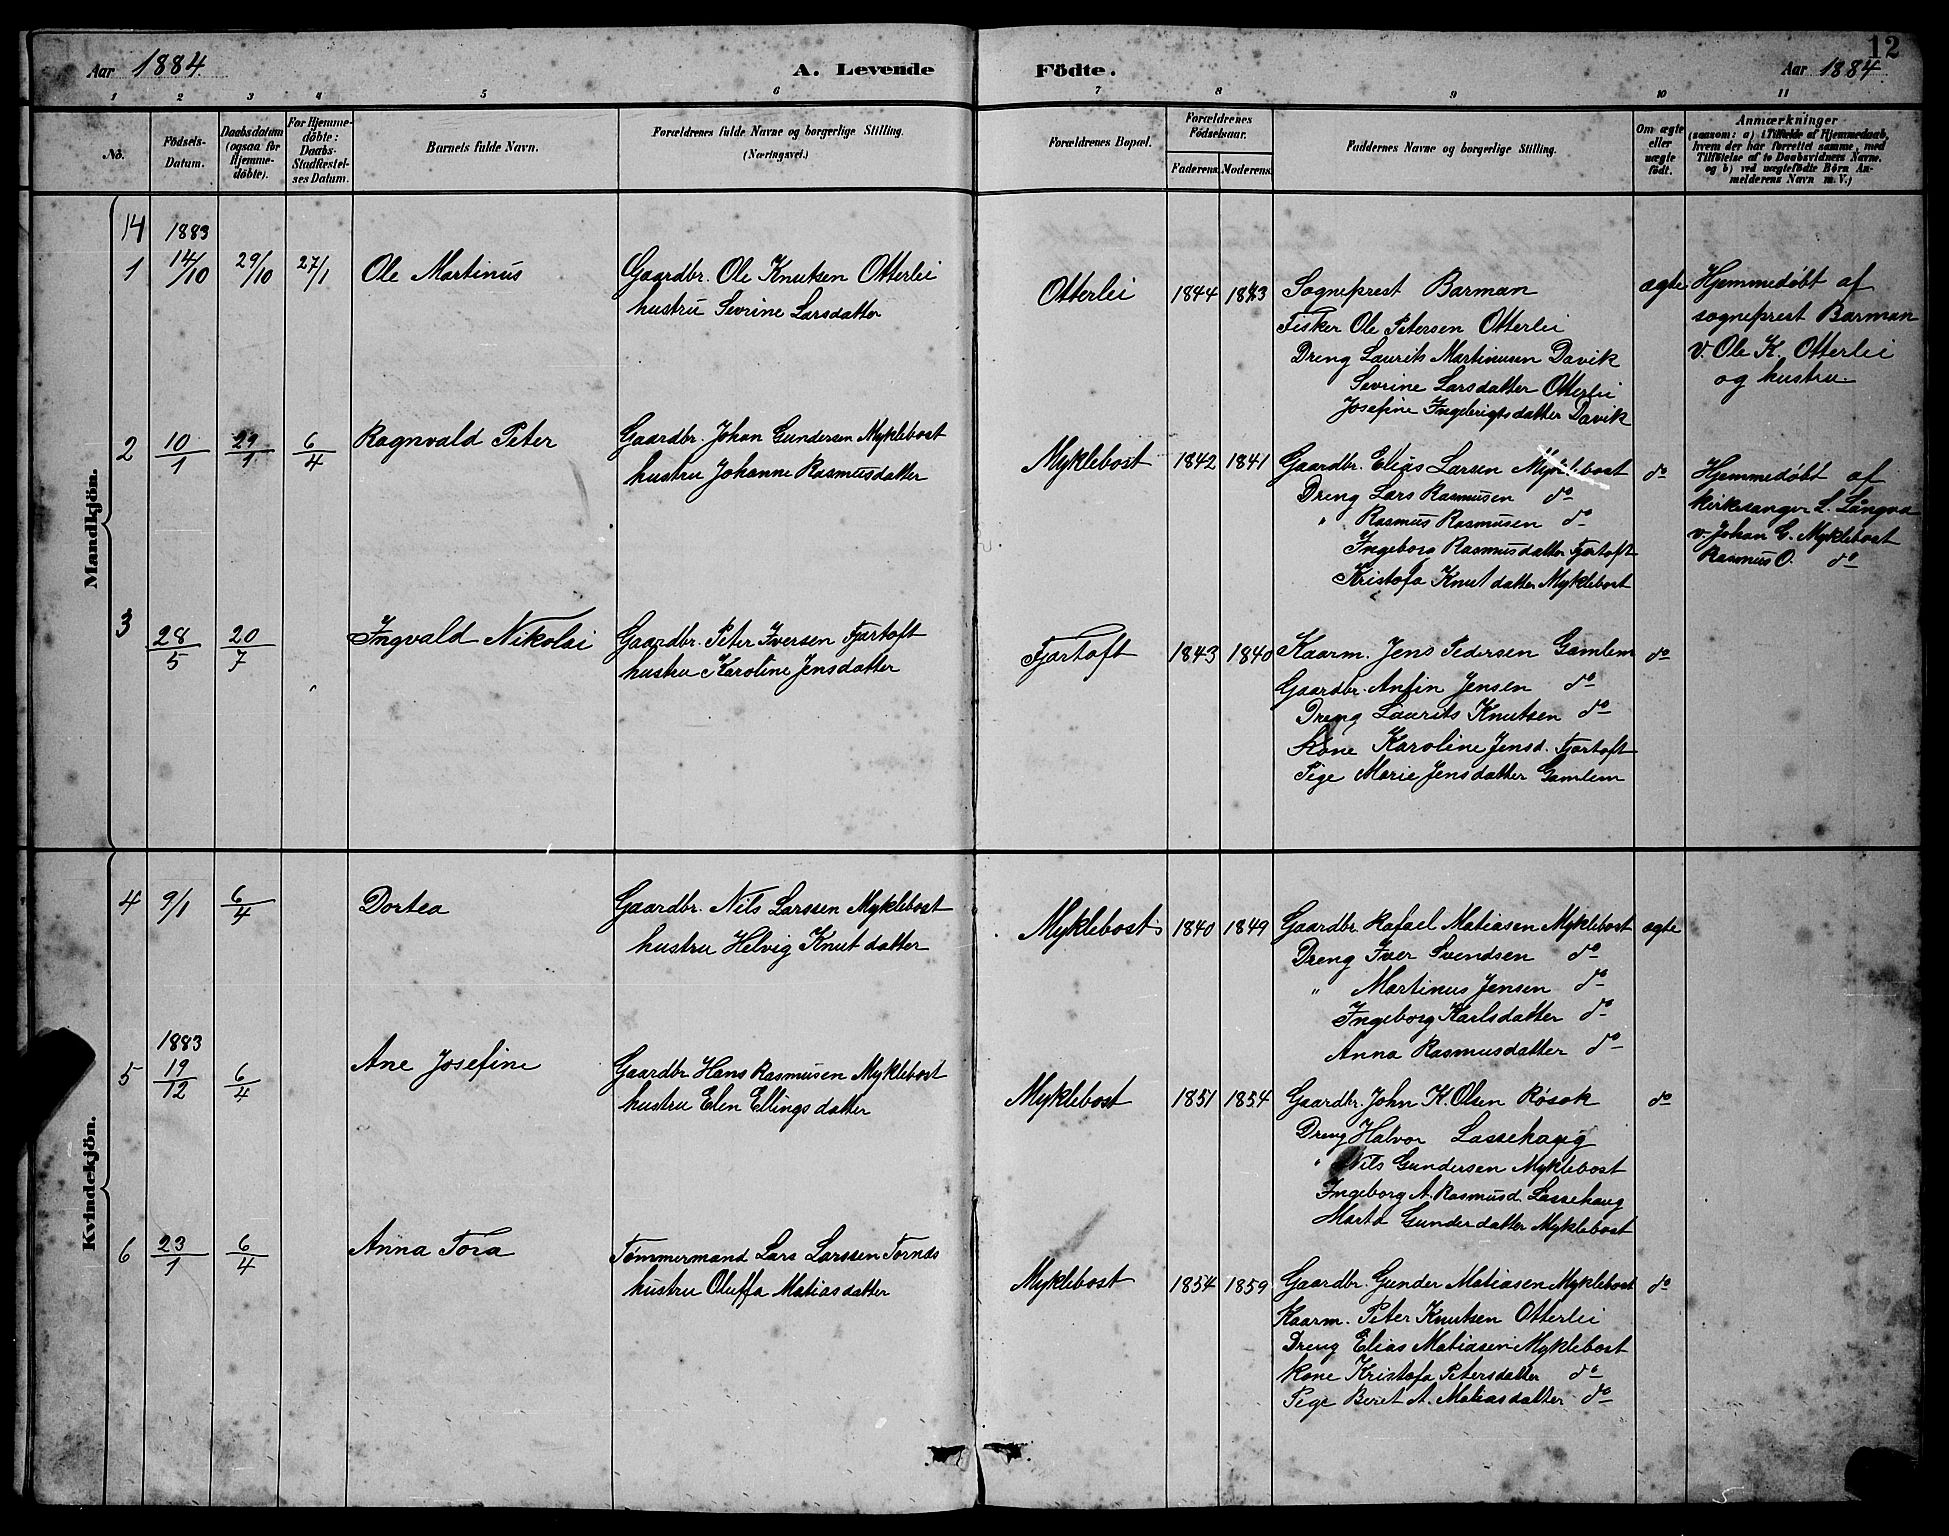 12
Aar 1884. A. Levende Födte. Aar 1884
1 2 3 4 5 6 7 8 9 10 11
No.
Födsels-
Datum.
Daabsdatum
(ogsaa for
Hjemme-
döbte).
For Hjemme-
döbte:
Daabs-
Stadfæstel-
ses Datum.
Barnets fulde Navn.
Forældrenes fulde Navne og borgerlige Stilling.
(Næringsvei.)
Forældrenes Bopæl.
Forældrenes
Födselsaar.
Faderens. Moderens.
Faddernes Navne og borgerlige Stilling.
Om ægte
eller
uægte
födt.
Anmærkninger
(saasom: a) i Tilfælde af Hjemmedaab,
hvem der har forrettet samme, med
Tilföielse af to Daabsvidners Navne,
og b) ved uægtefödte Börn An-
melderens Navn m.V.)
Mandkjön.
14 1883
1 14/10 29/10 27/1 Ole Martinus
Gaardbr. Ole Knutsen Otterlei
hustru Sevrine Larsdatter
Otterlei 1844 1843
Sogneprest Barman
Fisker Ole Petersen Otterlei
Dreng Laurits Martinusen Davik
Sevrine Larsdatter Otterlei
Josefine Ingebrigtsdatter Davik
ægte
Hjemmedøbt af
sogneprest Barman
v. Ole K. Otterlei
og hustru.
2 10/1 29/1 6/4 Ragnvald Peter
Gaardbr. Johan Gundersen Myklebost
hustru Johanne Rasmusdatter
Myklebost 1842 1841
Gaardbr. Elias Larsen Myklebost
Dreng Lars Rasmusen do
" Rasmus Rasmusen do
Ingeborg Rasmusdatter Fjørtoft
Kristofa Knutdatter Myklebost
do
Hjemmedøbt af
kirkesanger L. Langva
v. Johan G. Myklebost
Rasmus O. do
3 28/5 20/7 Ingvald Nikolai
Gaardbr. Peter Iversen Fjørtoft
hustru Karoline Jensdatter
Fjørtoft 1843 1840
Kaarm. Jens Pedersen Gamlem
Gaardbr. Anfin Jensen do
Dreng Laurits Knutsen do
Kone Karoline Jensd. Fjørtoft
Pige Marie Jensdatter Gamlem
do
Kvindekjön.
4 9/1 6/4 Dortea
Gaardbr. Nils Larssen Myklebost
hustru Helvig Knutdatter
Myklebost 1840 1849
Gaardbr. Rafael Matiasen Myklebost
Dreng Iver Svendsen do
" Martinus Jensen do
Ingeborg Karlsdatter do
Anna Rasmusdatter do
ægte
1883
5 19/12 6/4 Ane Josefine
Gaardbr. Hans Rasmusen Myklebost
hustru Elen Ellingsdatter
Myklebost 1851 1854
Gaardbr. John K. Olsen Røsok
Dreng Halvor Lassehaug
" Nils Gundersen Myklebost
Ingeborg A. Rasmusd. Lassehaug
Marta Gunderdatter Myklebost
do
6 23/1 6/4 Anna Tora
Tømmermand Lars Larssen Tornes
hustru Oluffa Matiasdatter
Myklebost 1854 1859
Gaardbr. Gunder Matiasen Myklebost
Kaarm. Peter Knutsen Otterlei
Dreng Elias Matiasen Myklebost
Kone Kristofa Petersdatter do
Pige Beret A. Matiasdatter do
do